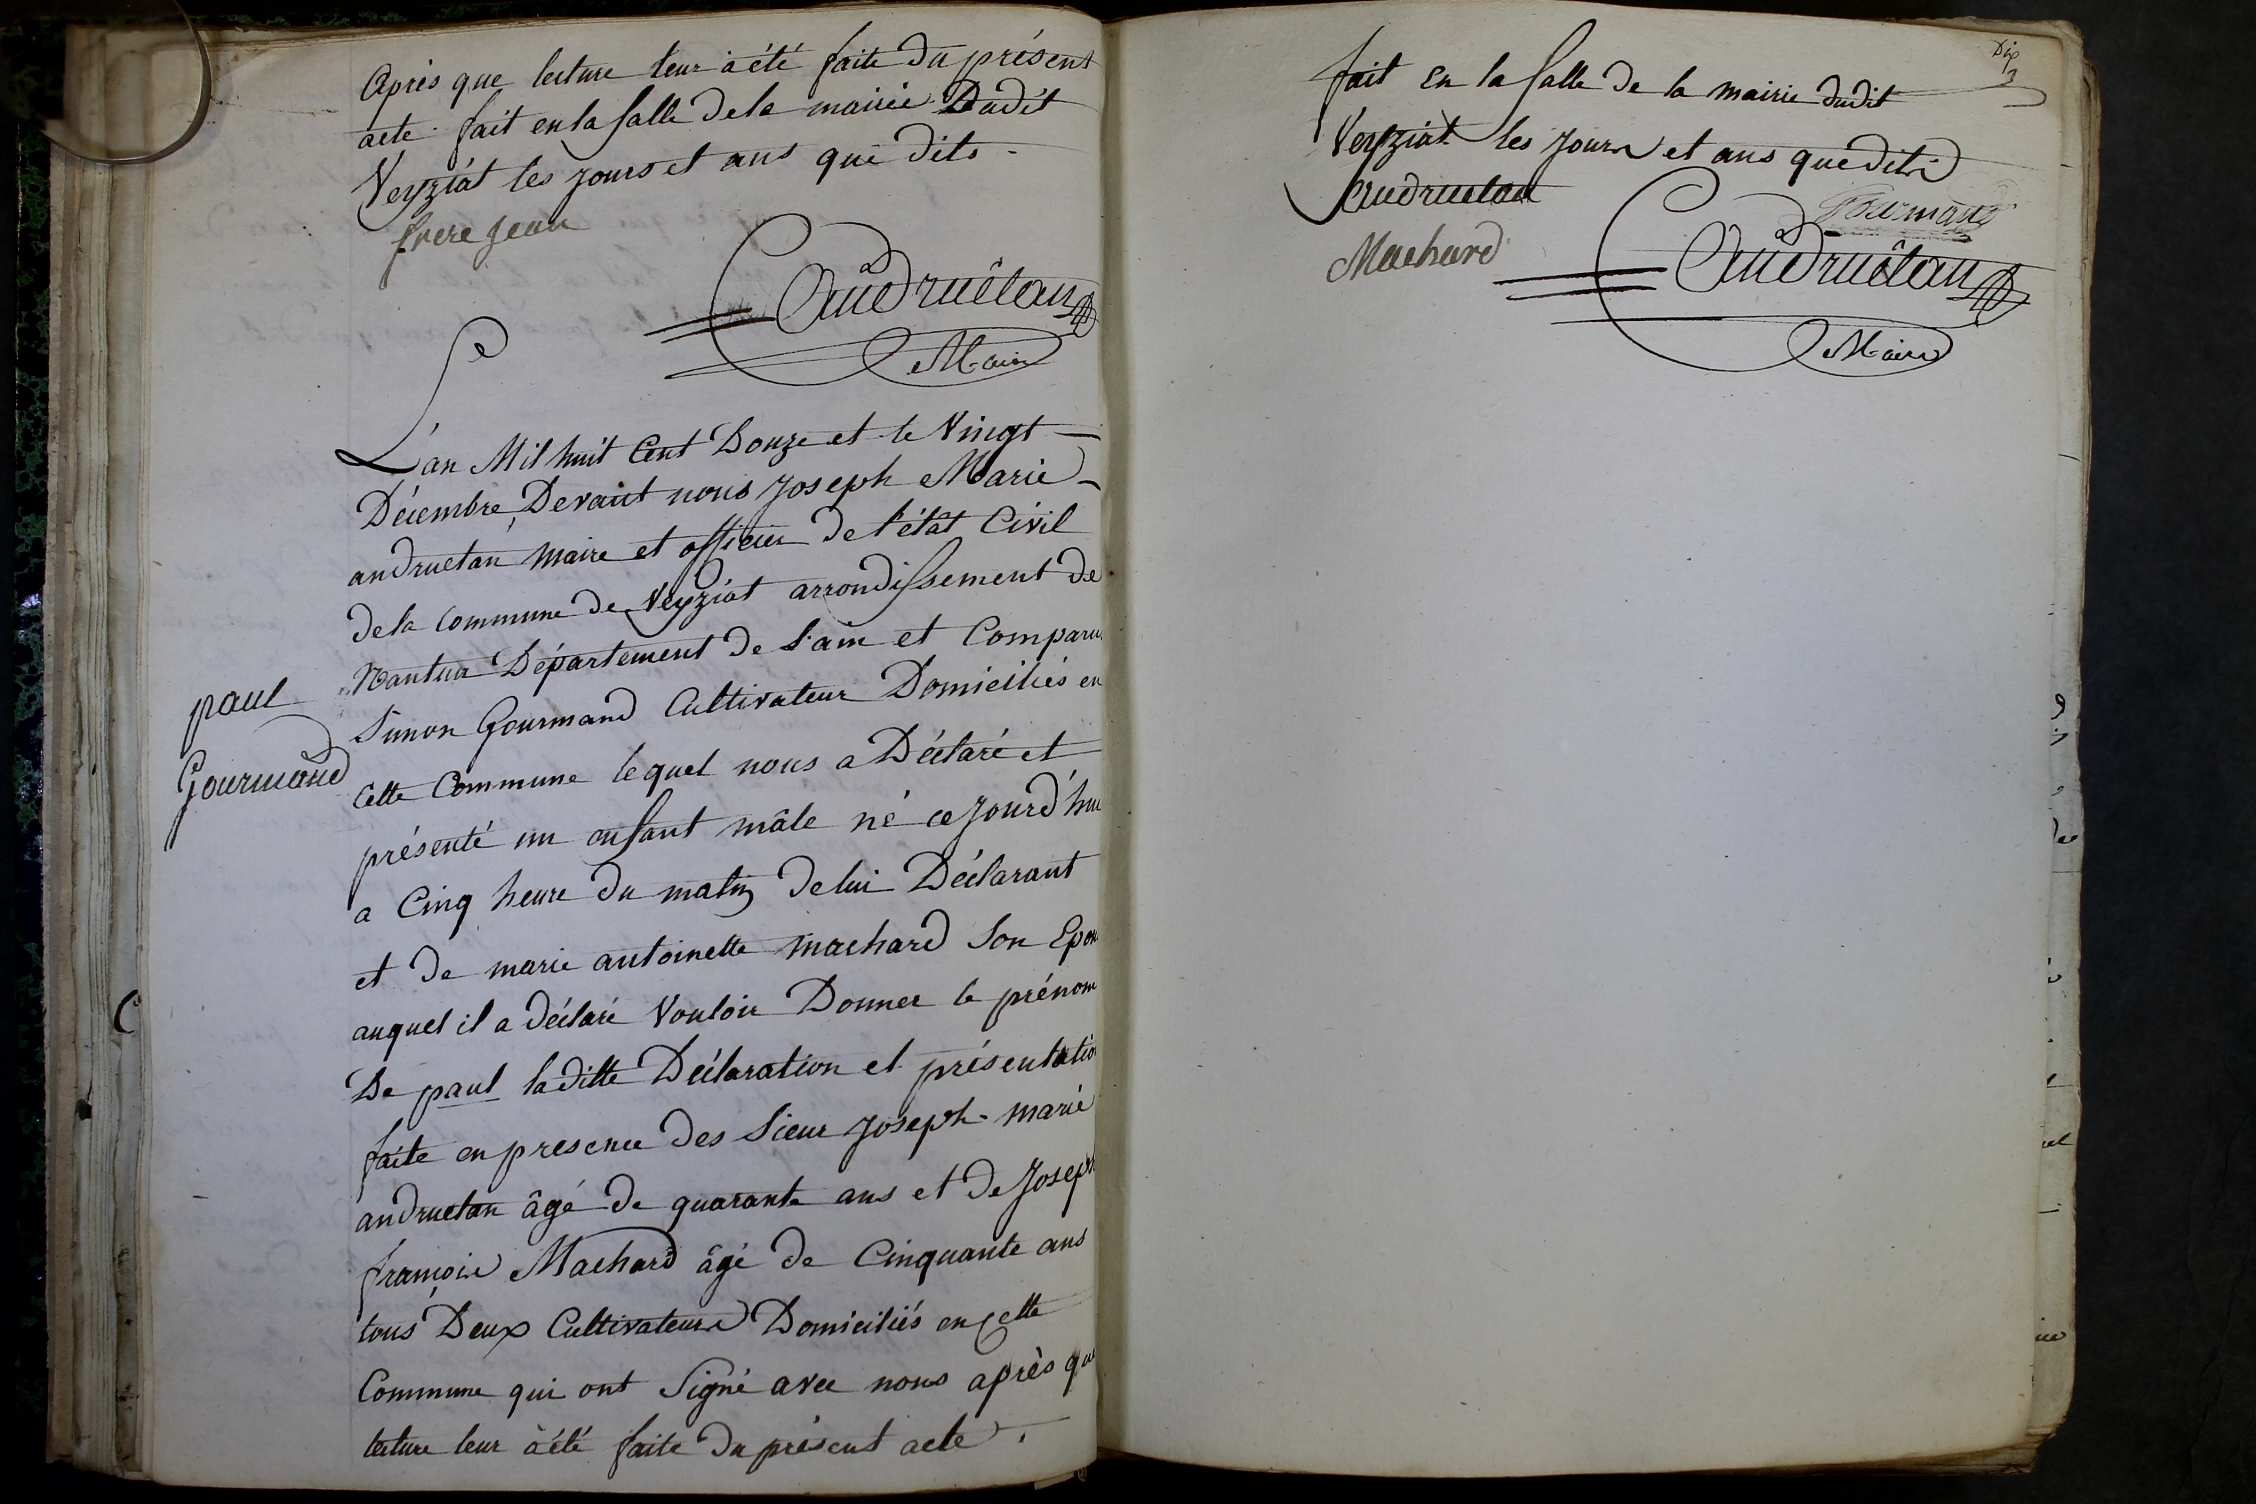 Après que lecture leur à été faite du présent
acte. fait en la salle de la mairie Dudit
Veyziat les jours et ans que dits -
frere jean
Andruétan
Maire
L'an Mil huit Cent Douze et le Vingt
Décembre, Devant nous Joseph Marie
andruetan Maire et officier de l'état Civil
de la Commune de Veyziat arrondissement de
Nantua Département de l'ain et Comparu
Simon Gourmand Cultivateur Domiciliés en
cette Commune lequel nous a Déclaré et
paul
Gourmand
présenté un enfant mâle né cejourd'hui
a Cinq heure du matin de lui Déclarant
et de marie antoinette machard son Epou
auquel il a déclaré Vouloir Donner le prénom
De paul laditte Déclaration et présentation
faite en presence des sieur Joseph-marie
andruetan âgé de quarante ans et de Joseph
françois Machard âgé de Cinquante ans
tous Deux Cultivateurs Domiciliés en cette
Commune qui ont Signé avec nous après que
lecture leur à été faite du présent acte.
fait En la salle de la mairie dudit
Veyziat les jours et ans que dits
andruetan
Gourmand
Machard
Andruétan
Maire